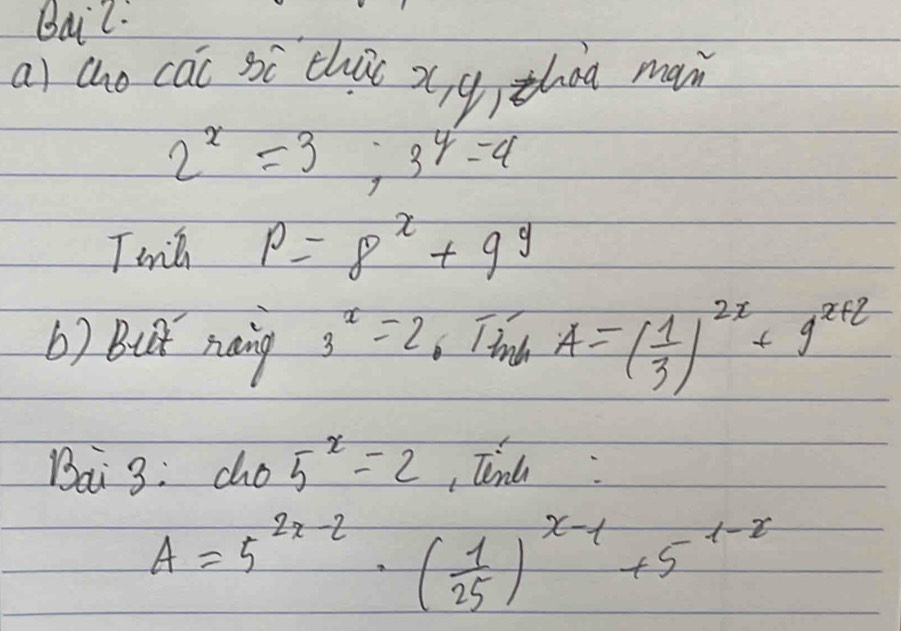 Bài 2:
a) Cho các số thực x, y, thỏa mãn
2^x = 3 ; 3^y = 4
Tính P = 8^x + 9^y
b) Biết rằng 3^x = 2. Tính A = (1/3)^{2x} + 9^{x+2}
Bài 3: cho 5^x = 2, Tính :
A = 5^{2x-2} . (1/25)^{x-1} + 5^{1-x}